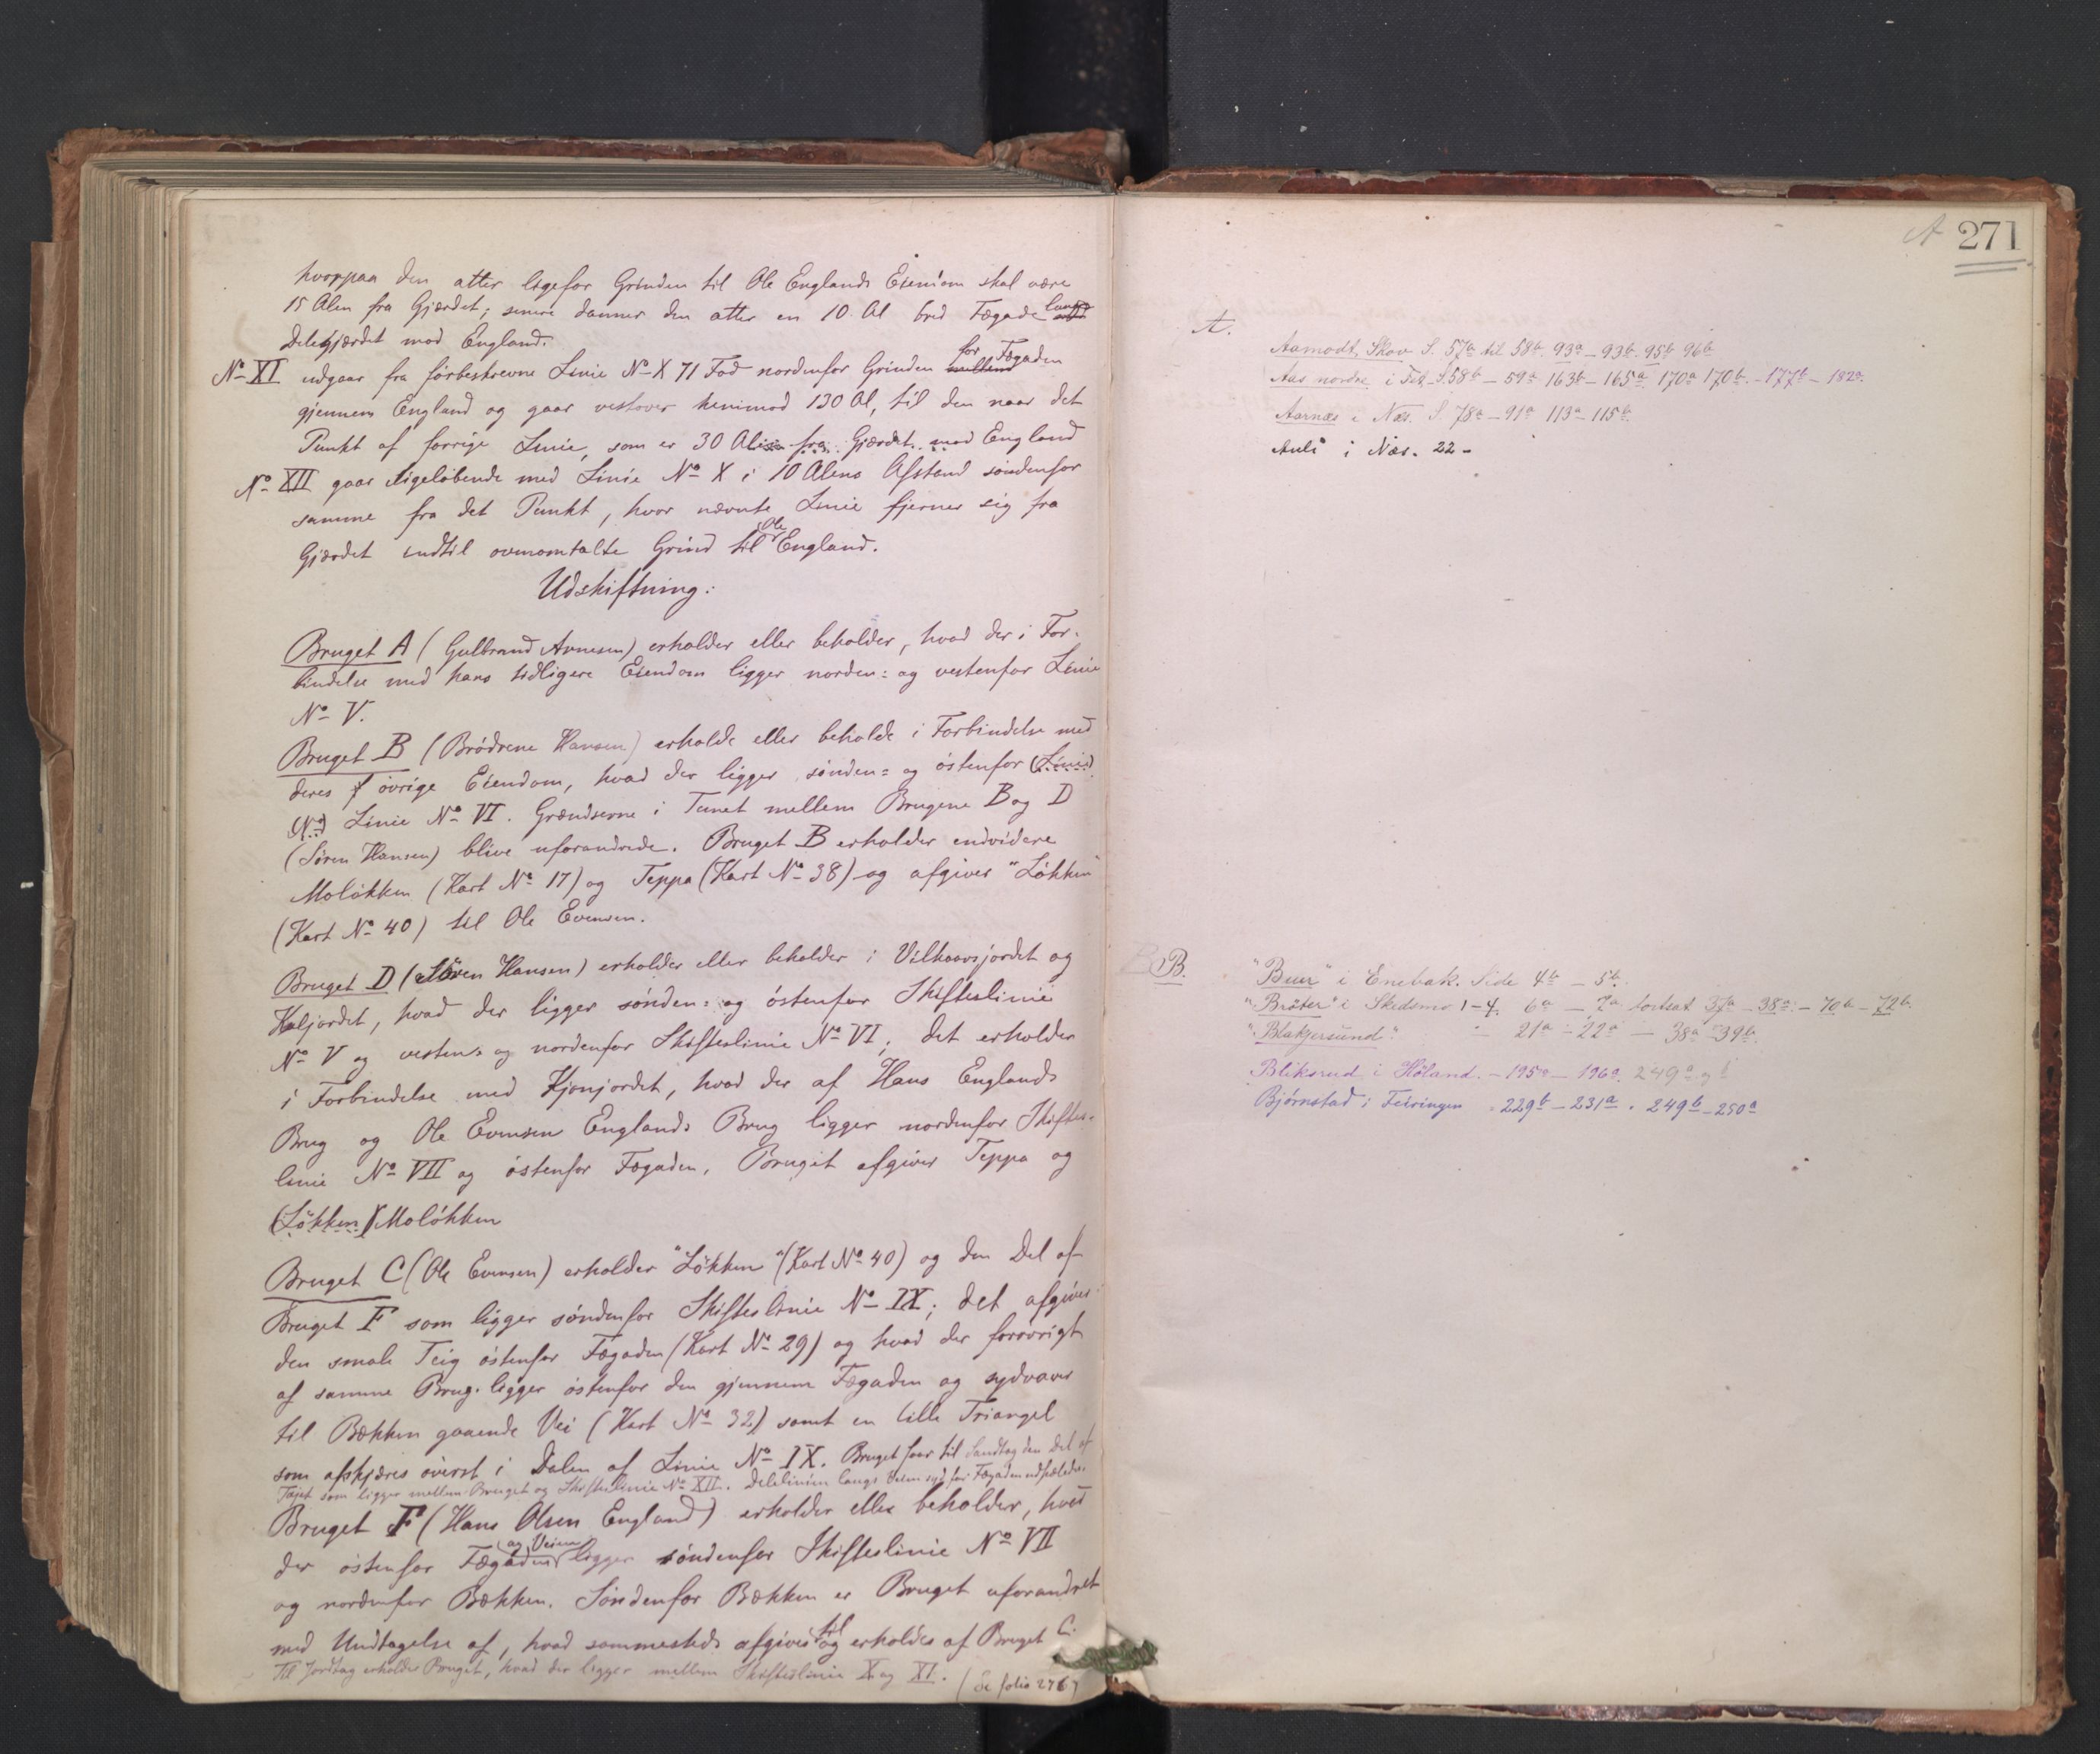 hvorpaa den atter ligefor Grinden til Ole Englands Eiendom skal være
15 Alen fra Gjærdet; senere danner den atter en 10 Al bred Fægade langs
Delegjærdet mod England.
No XI udgaar fra førbeskrevne Linie No X 71 Fod nordenfor Grinden for Fægaden
gjennem England og gaar vestover henimod 130 Al, til den naar det
Punkt af forrige Linie, som er 30 Alen fra Gjærdet mod England
No XII gaar ligeløbende med Linie No X i 10 Alens Afstand søndenfor
samme fra det Punkt, hvor nævnte Linie fjerner sig fra
Gjærdet indtil ovenomtalte Grind til Ole England.
Udskiftning:
Bruget A (Gulbrand Arnesen) erholder eller beholder, hvad der i For-
bindelse med hans tidligere Eiendom ligger norden= og vestenfor Linie
No V.
Bruget B (Brødrene Hansen) erholde eller beholde i Forbindelse med
deres øvrige Eiendom, hvad der ligger sønden= og østenfor (Linie)
(No) Linie No VI. Grændserne i Tunet mellem Brugene B og D
(Søren Hansen) blive uforandrede. Bruget B erholder endvidere
Moløkken (Kart No 17) og Teppa (Kart No 38) og afgiver "Løkken"
(Kart No 40) til Ole Evensen.
Bruget D (Søren Hansen) erholder eller beholder i Vilhaarsjordet og
Kaljordet, hvad der ligger sønden= og østenfor Skifteslinie
No V og vesten= og nordenfor Skifteslinie No VI; det erholder
i Forbindelse med Kjonjordet, hvad der af Hans Englands
Brug og Ole Evensen Englands Brug ligger nordenfor Skiftes-
linie No VII og østenfor Fægaden. Bruget afgiver Teppa og
(Løkken) Moløkken
Bruget C (Ole Evensen) erholder "Løkken" (Kart No 40) og den Del af
Bruget F som ligger søndenfor Skifteslinie No IX; det afgiver
den smale Teig østenfor Fægaden (Kart No 29) og hvad der forøvrigt
af samme Brug ligger østenfor den gjennem Fægaden og sydover
til Bækken gaaende Vei (Kart No 32) samt en lille Triangel
som afskjæres øverst i Dalen af Linie No IX. Bruget faar til Sandtag den Del af
Tajet som ligger mellem Bruget og Skifteslinie No XII. Delelinien langs Veien syd for Fægaden udpæledes.
Bruget F (Hans Olsen England) erholder eller beholder, hvad
der østenfor Fægaden og Veien ligger søndenfor Skifteslinie No VII
og nordenfor Bækken. Søndenfor Bækken er Bruget uforandret
med Undtagelse af, hvad sammesteds afgives til og erholdes af Bruget C.
Til Jordtag erholder Bruget, hvad der ligger mellem Skifteslinie X og XI. (Se folio 276)
A 271
A.
Aamodt Skov S. 57a til 58b. 93a – 93b. 95b 96b
Aas nordre i Fet S. 58b – 59a 163b – 165a 170a 170b. – 177b – 182a.
Aarnæs i Næs. S 78a – 91a 113a – 115b
Auli i Næs. 22 –
B.
"Buer" i Enebak. Side 4b – 5b.
"Bråter" i Skedsmo 1–4. 6a – 7a fortsat 37a – 38a. – 70b – 72b.
"Blakjersund" – 21a – 22a – 38a – 39b.
Bliksrud i Høland. – 195a – 196a. 249a og b
Bjørnstad i Feiringen = 229b – 231a . 249b – 250a